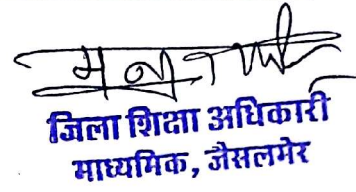 जिला शिक्षा अधिकारी
माध्यमिक, जैसलमेर